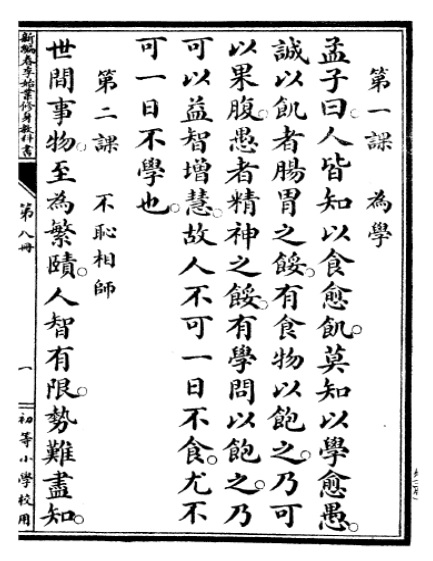 第一課　為學
孟子曰。人皆知以食愈飢。莫知以學愈愚。
誠以飢者腸胃之餒。有食物以飽之。乃可
以果腹。愚者精神之餒。有學問以飽之。乃
可以益智增慧。故人不可一日不食。尤不
可一日不學也。
第二課　不恥相師
世間事物。至為繁賾。人智有限。勢難盡知。
新編春季始業修身教科書
第八冊
一
初等小學校用